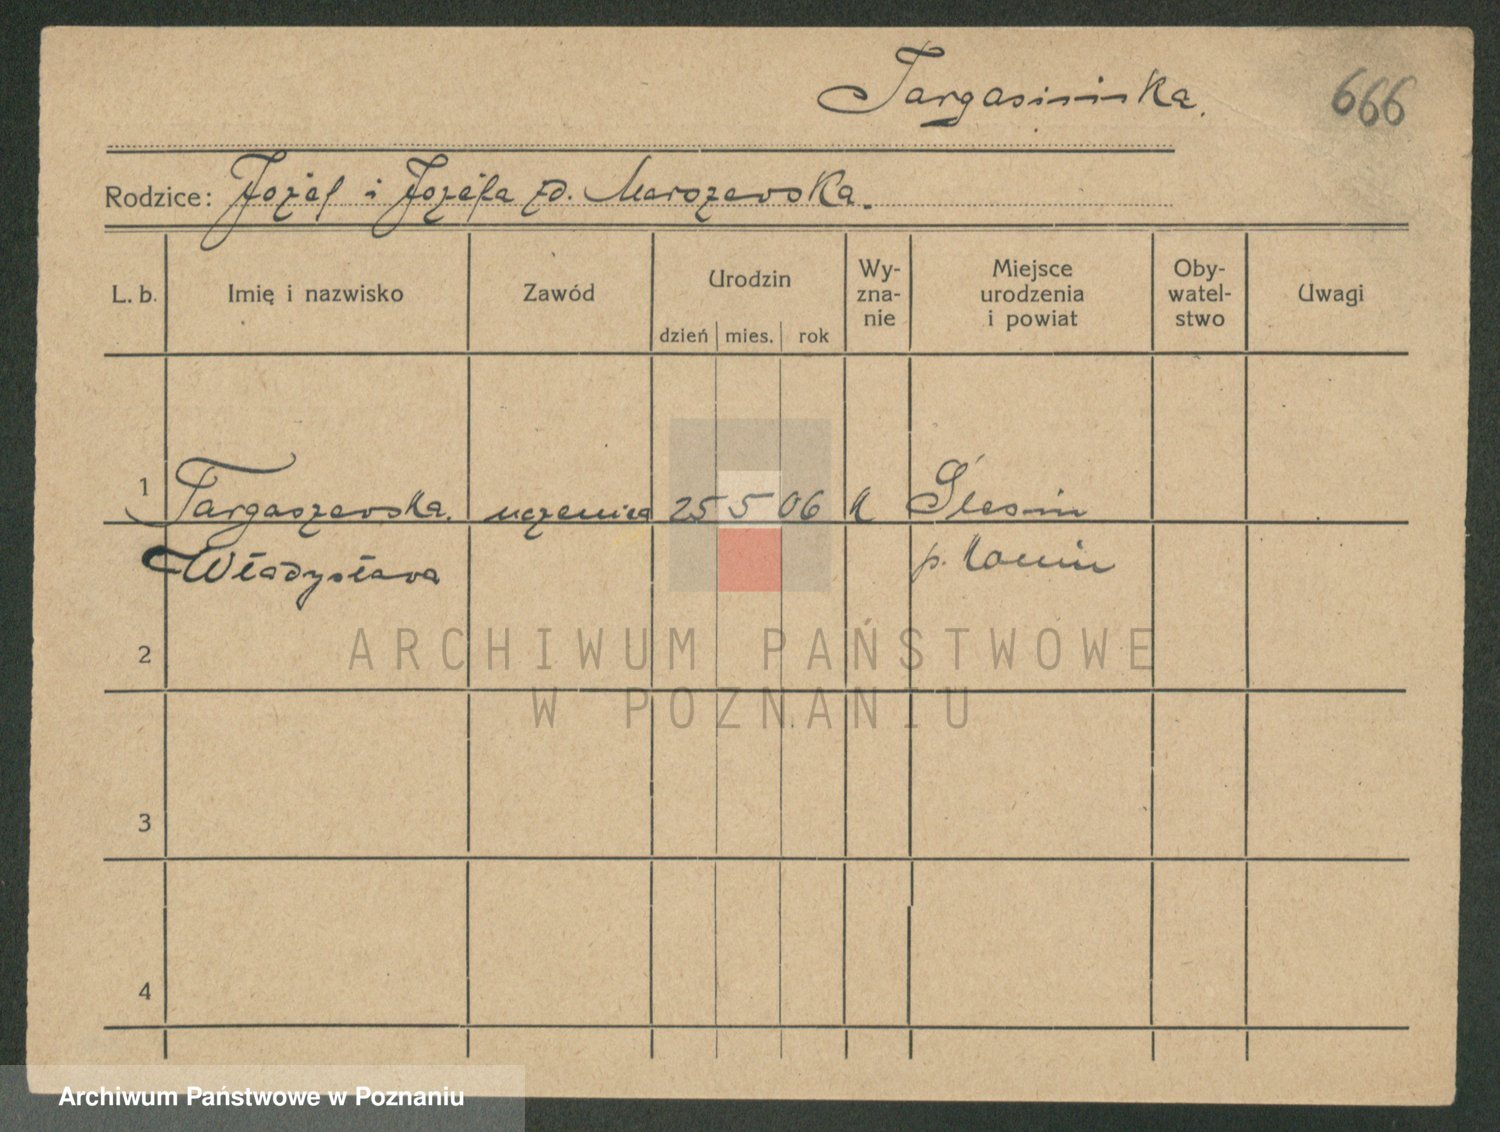 Targasińska.
666
Rodzice: Józef i Józefa zd. Marszewska.
L. b. Imię i nazwisko Zawód Urodzin Wy-zna-nie Miejsce urodzenia i powiat Oby-watel-stwo Uwagi
dzień mies. rok
1 Targaszewska. uczenica 25 5 06 k Ślesin
Władysława p. Konin
2
ARCHIWUM PAŃSTWOWE
W POZNANIU
3
4
Archiwum Państwowe w Poznaniu